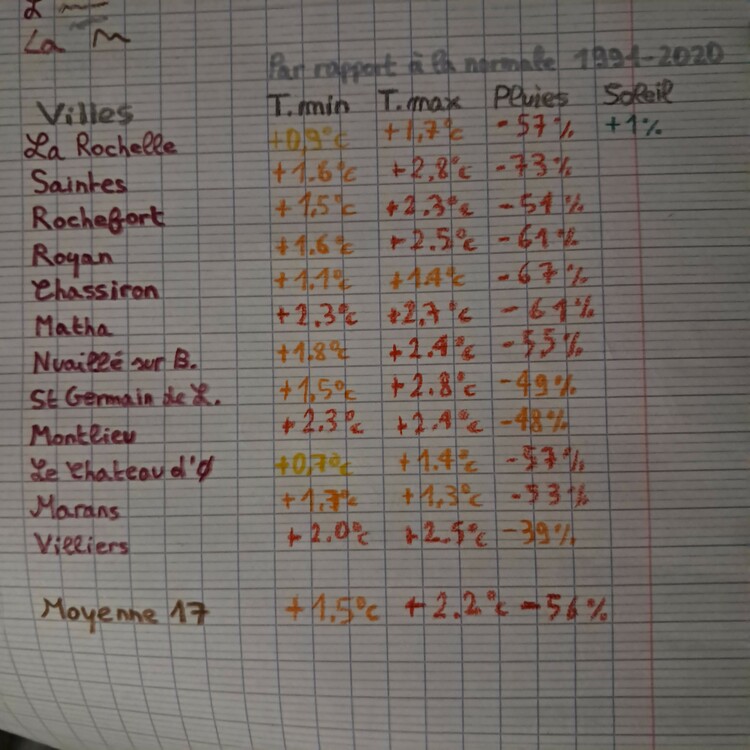 La M
Par rapport à la normale 1991-2020
Villes T.min T.max Pluies Soleil
La Rochelle +0,9°C +1,7°C -57% +1%
Saintes +1.6°C +2,8°C -73%
Rochefort +1,5°C +2.3°C -51%
Royan +1.6°C +2.5°C -61%
Chassiron +1.1°C +1.4°C -67%
Matha +2.3°C +2.7°C -61%
Nuaillé sur B. +1,8°C +2.4°C -55%
St Germain de L. +1,5°C +2.8°C -49%
Montlieu +2.3°C +2.4°C -48%
Le Chateau d'O +0,7°C +1.4°C -57%
Marans +1,7°C +1,3°C -53%
Villiers +2.0°C +2.5°C -39%
Moyenne 17 +1.5°C +2.2°C -56%